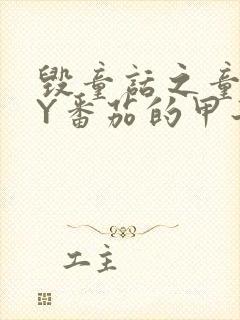 毁童话之童
Y番茄的甲
工主